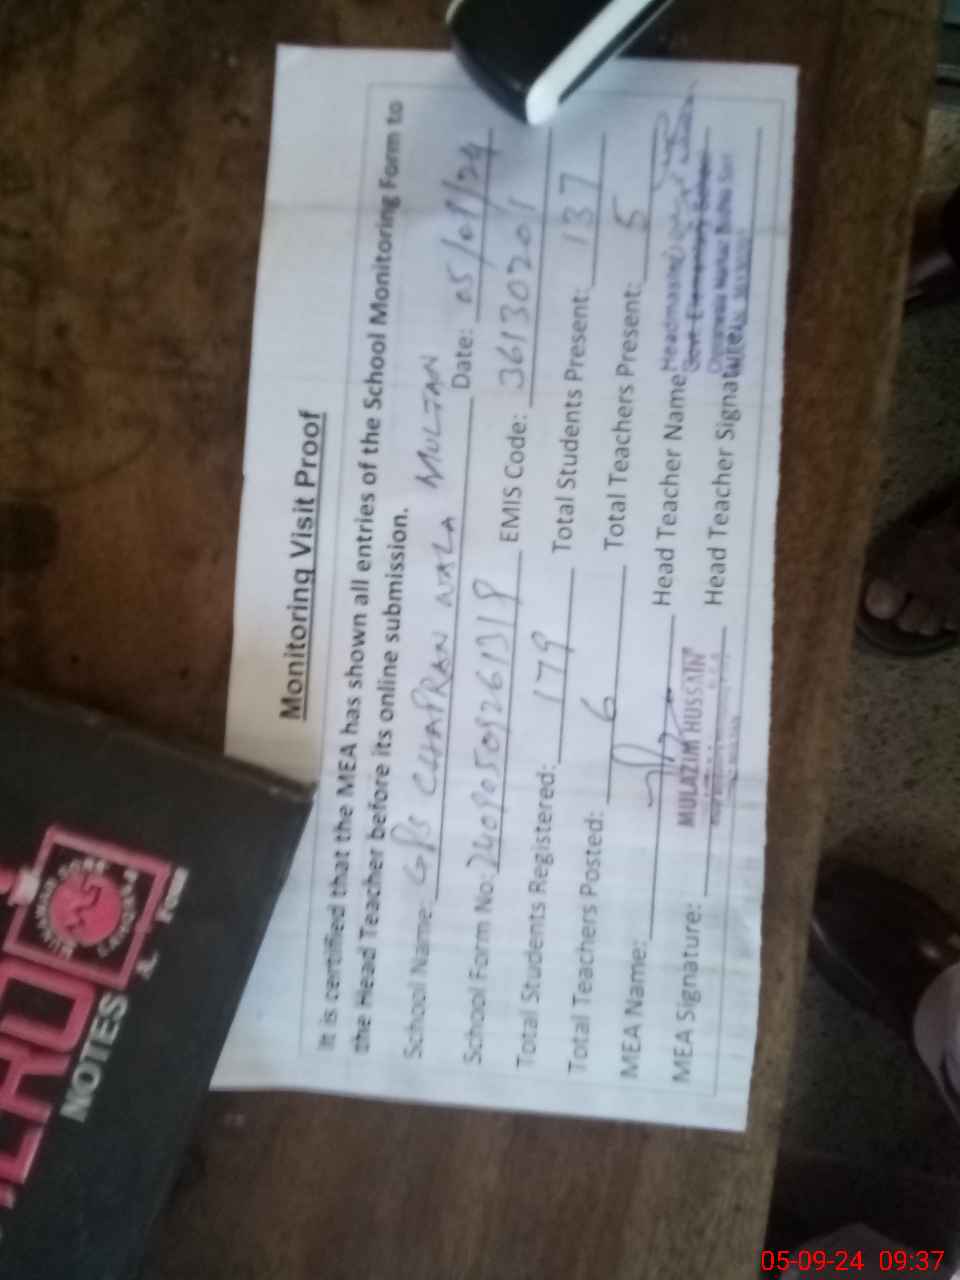 Monitoring Visit Proof
It is certified that the MEA has shown all entries of the School Monitoring Form to
the Head Teacher before its online submission.
School Name: GPS CHAPRAN WALA MULTAN
Date: 05/09/24
School Form No: EMIS Code: 36130201
Total Students Registered: 179 Total Students Present: 137
Total Teachers Posted: 6 Total Teachers Present: 5
MEA Name: Head Teacher Name
MULAZIM HUSSAIN
Headmaster
Govt. Elementary School
MEA Signature: Head Teacher Signature
NOTES
05-09-24 09:37